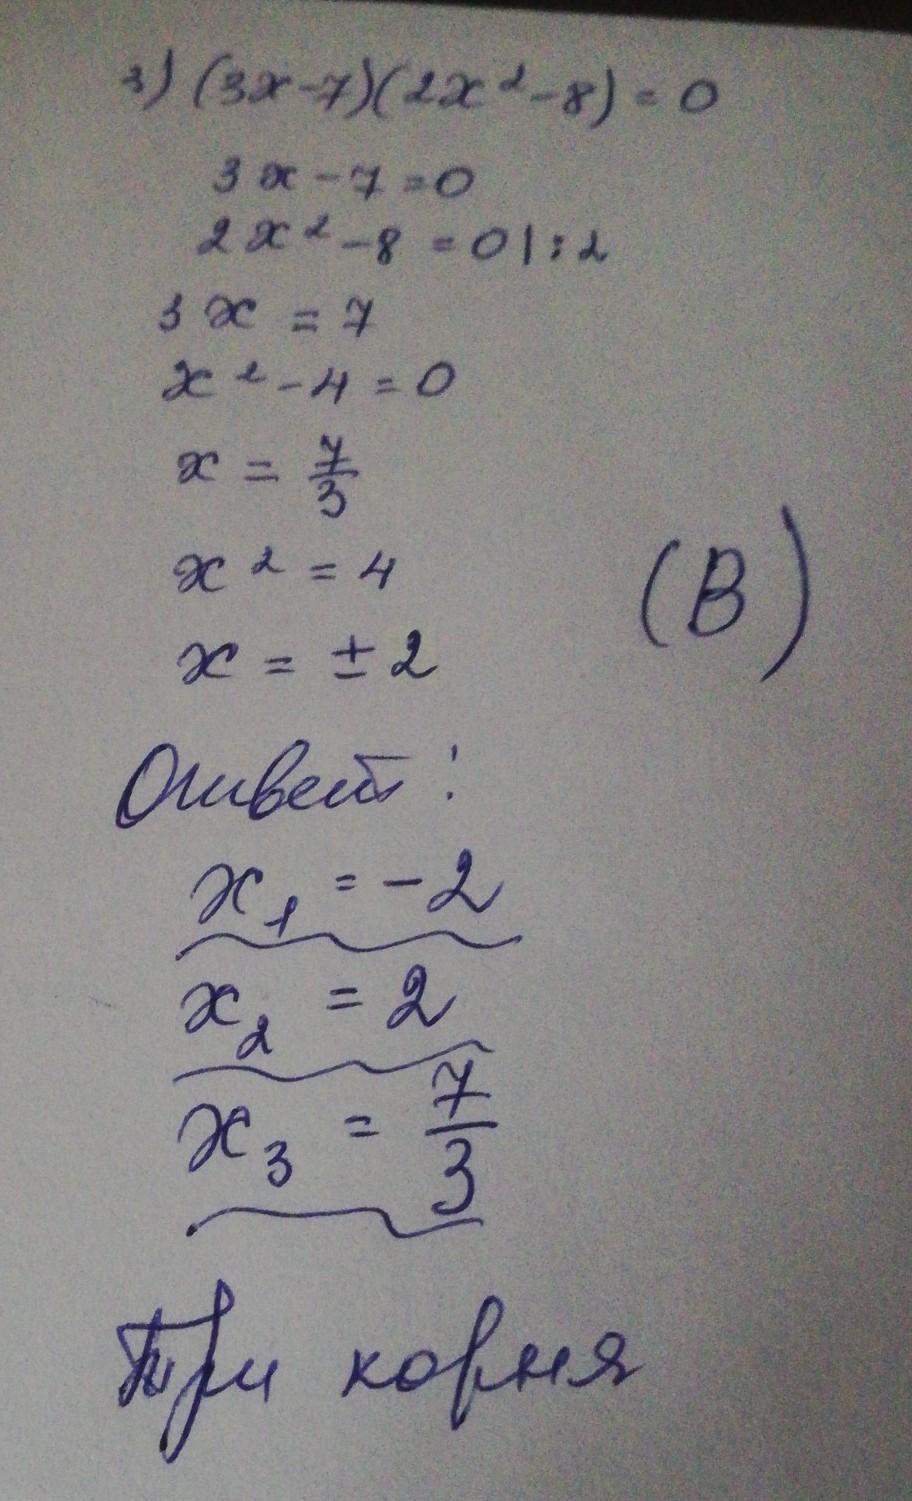 3) (3x-7)(2x²-8) = 0
3x-7=0
2x²-8 = 0 | : 2
3x = 7
x²-4=0
x = 7/3
x² = 4
(B)
x = ±2
Ответ:
x₁ = -2
x₂ = 2
x₃ = 7/3
Три корня